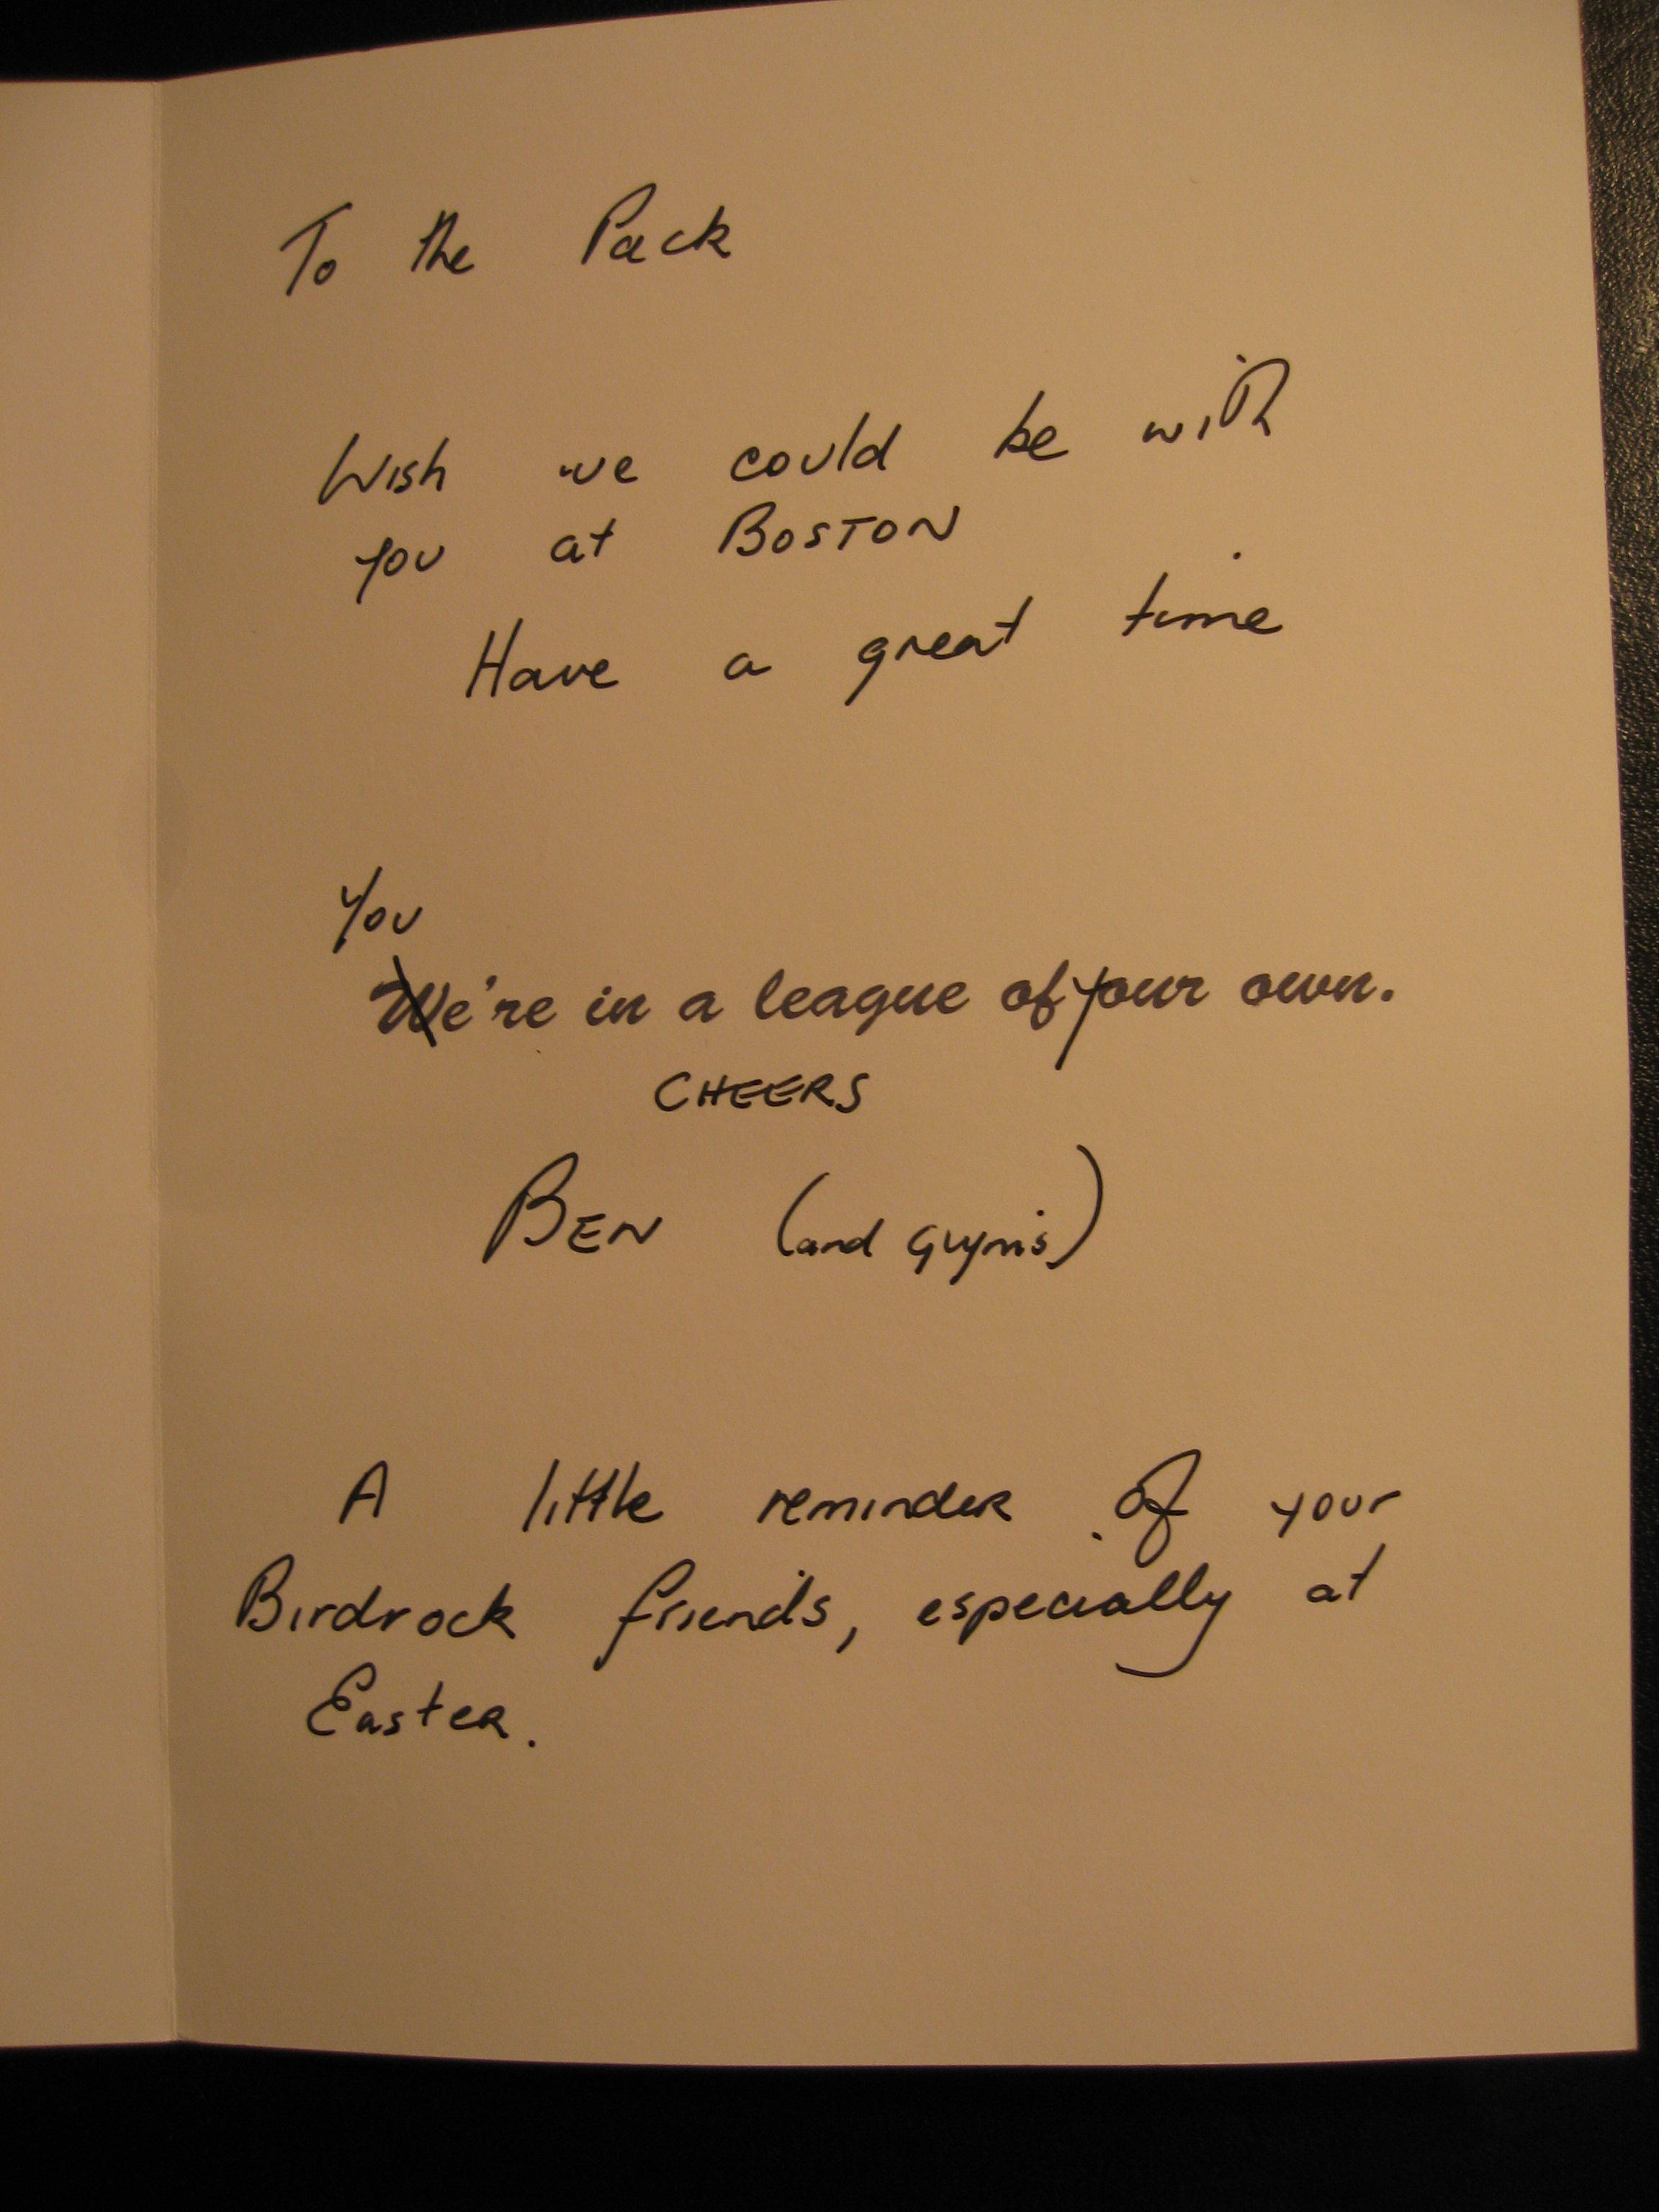 To the Pack
Wish we could be with
you at BOSTON
Have a great time
You
We're in a league of your own.
CHEERS
BEN (and
A little reminder of your
Birdrock friends, especially at
Easter.